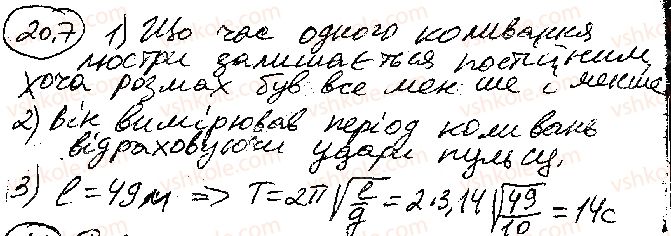 20,7 1) Що час одного коливання
люстри залишається постійним,
хоча розмах був все менше і менше
2) Він вимірював період коливань
відраховуючи удари пульсу.
3) l = 49м => T = 2π√(l/g) = 2·3,14√(49/10) = 14с